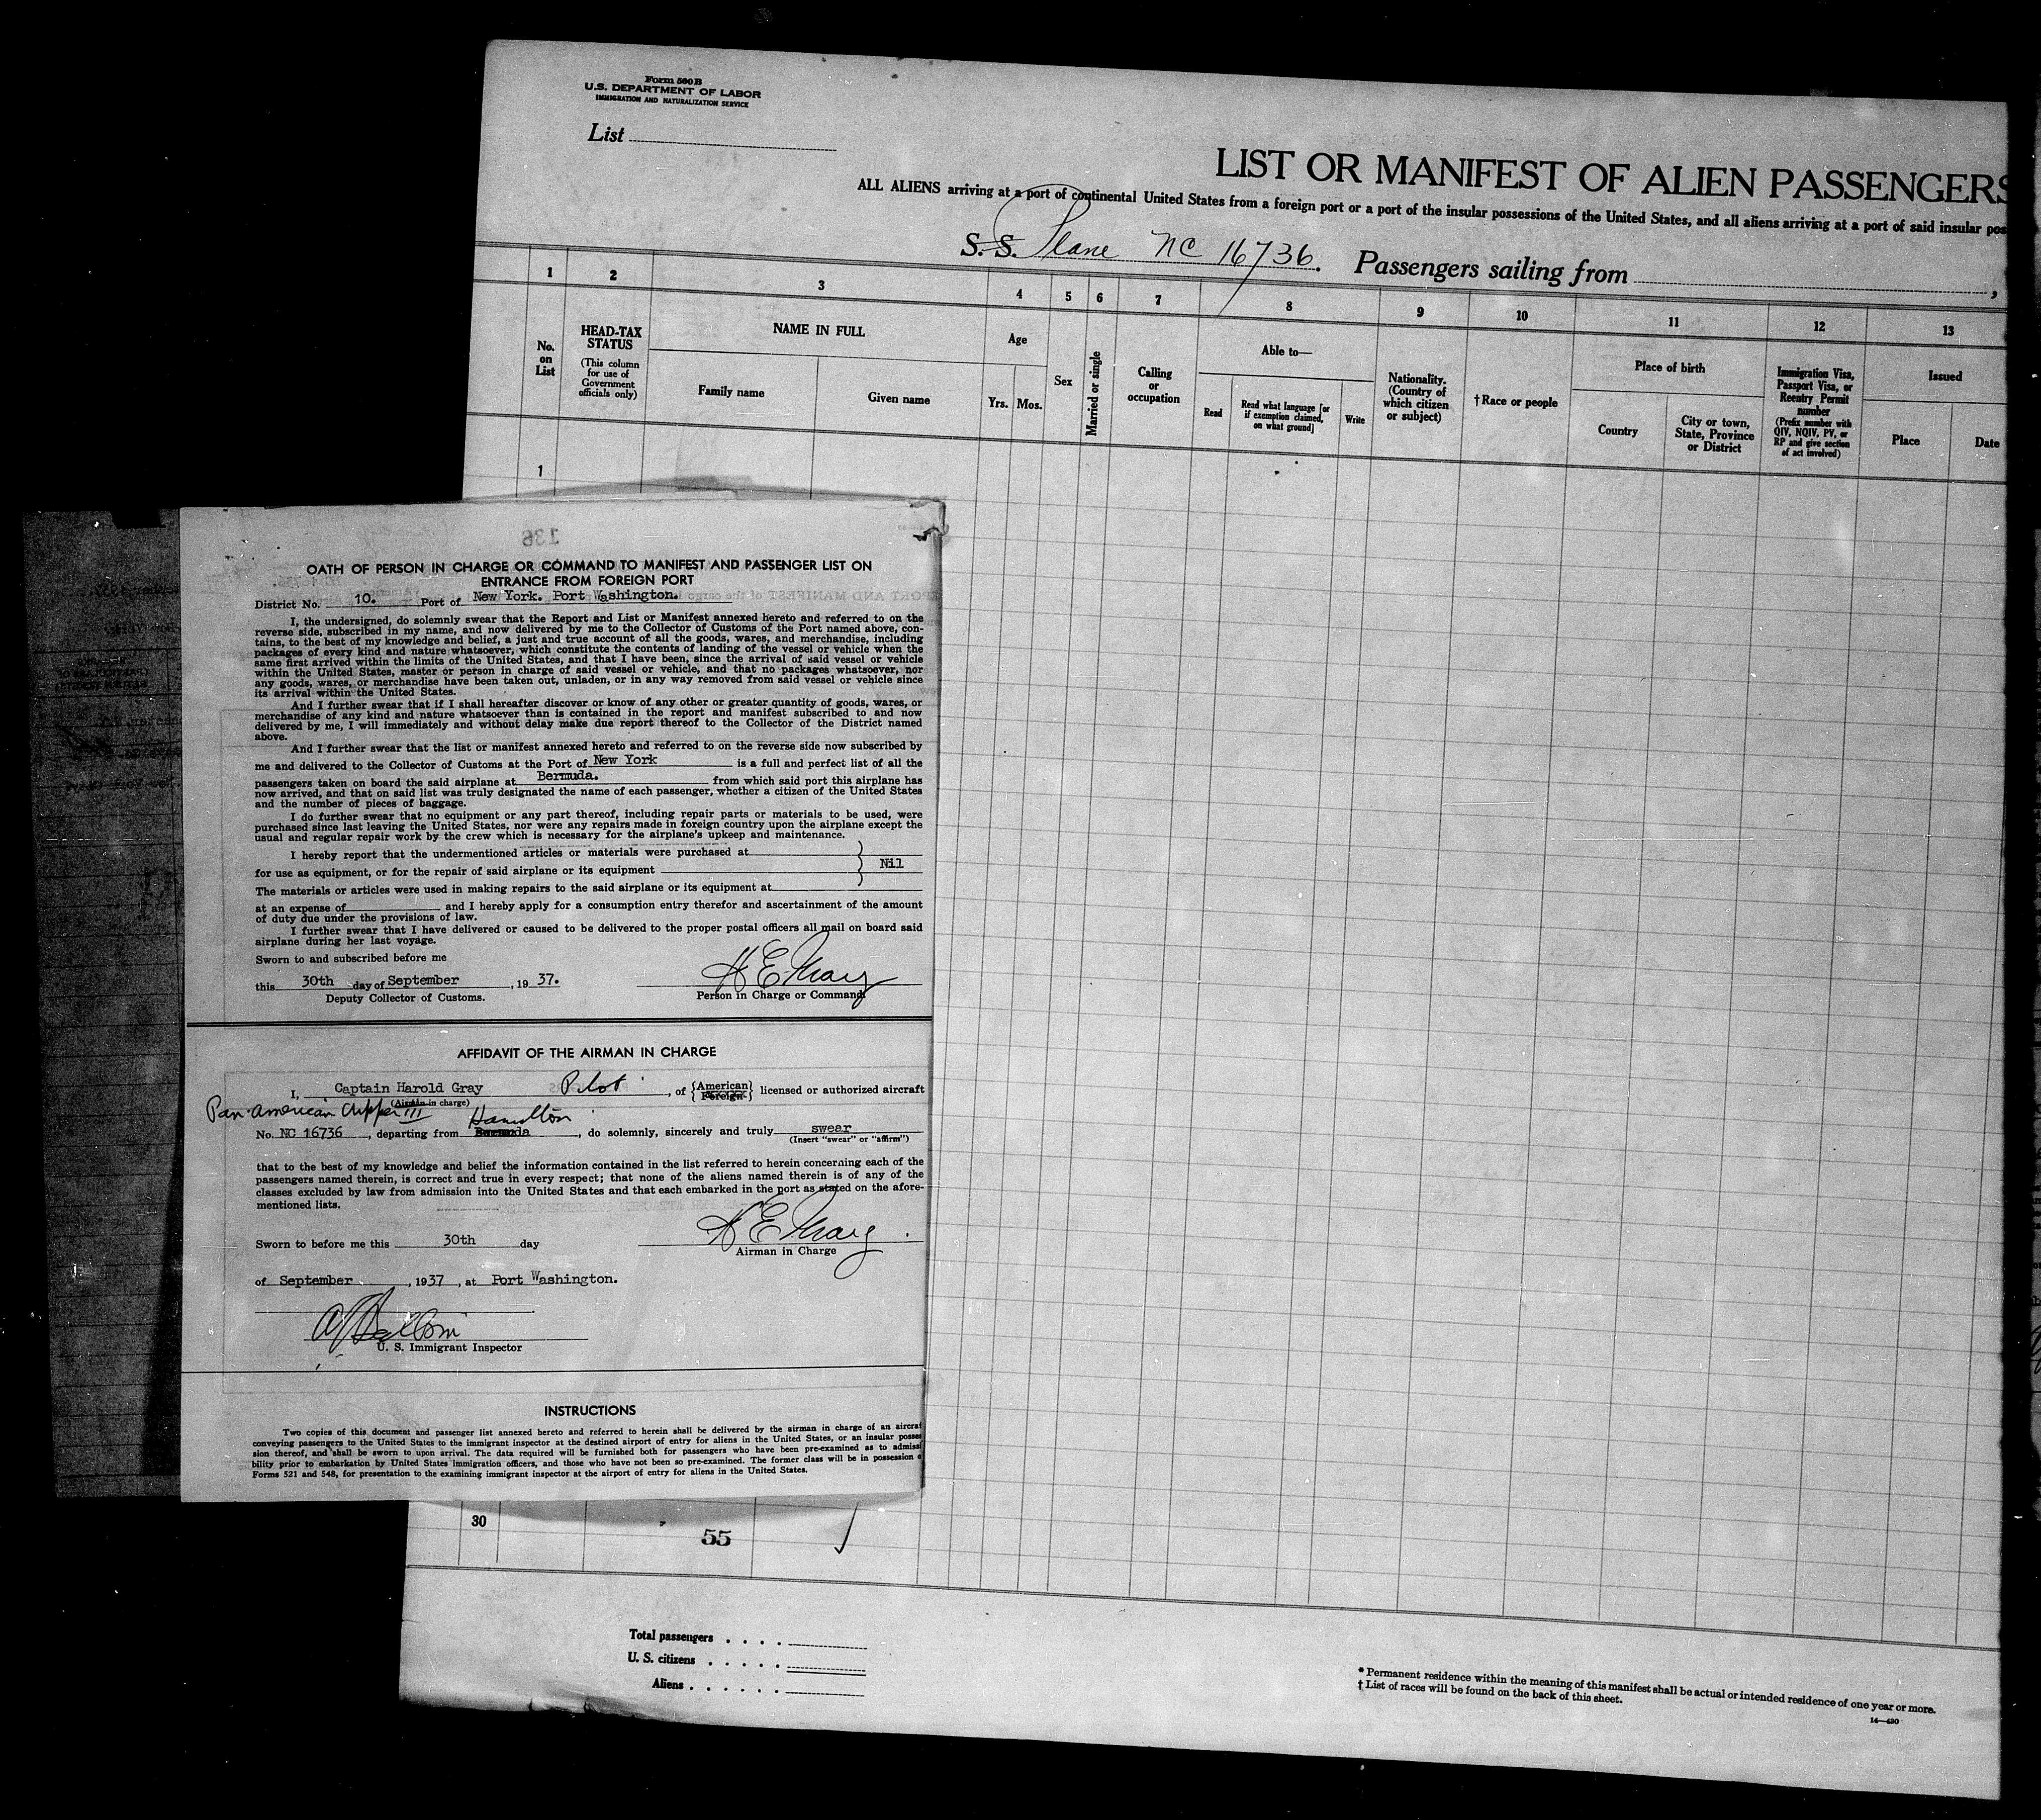 Form 500 B
U.S. DEPARTMENT OF LABOR
IMMIGRATION AND NATURALIZATION SERVICE
List
LIST OR MANIFEST OF ALIEN PASSENGERS
ALL ALIENS arriving at a port of continental United States from a foreign port or a port of the insular possessions of the United States, and all aliens arriving at a port of said insular pos
S. S. Plane NC 16736. Passengers sailing from ,
1 2 3 4 5 6 7 8 9 10 11 12 13
No. on List
HEAD-TAX STATUS
(This column for use of Government officials only)
NAME IN FULL
Family name
Given name
Age
Yrs. Mos.
Sex
Married or single
Calling or occupation
Able to—
Read
Read what language [or if exemption claimed, on what ground]
Write
Nationality. (Country of which citizen or subject)
†Race or people
Place of birth
Country
City or town, State, Province or District
Immigration Visa, Passport Visa, or Reentry Permit number
(Prefix number with QIV, NQIV, PV, or RP and give section of act involved)
Issued
Place
Date
1
136
OATH OF PERSON IN CHARGE OR COMMAND TO MANIFEST AND PASSENGER LIST ON
ENTRANCE FROM FOREIGN PORT
District No. 10. Port of New York. Port Washington.
I, the undersigned, do solemnly swear that the Report and List or Manifest annexed hereto and referred to on the
reverse side, subscribed in my name, and now delivered by me to the Collector of Customs of the Port named above, con-
tains, to the best of my knowledge and belief, a just and true account of all the goods, wares, and merchandise, including
packages of every kind and nature whatsoever, which constitute the contents of landing of the vessel or vehicle when the
same first arrived within the limits of the United States, and that I have been, since the arrival of said vessel or vehicle
within the United States, master or person in charge of said vessel or vehicle, and that no packages whatsoever, nor
any goods, wares, or merchandise have been taken out, unladen, or in any way removed from said vessel or vehicle since
its arrival within the United States.
And I further swear that if I shall hereafter discover or know of any other or greater quantity of goods, wares, or
merchandise of any kind and nature whatsoever than is contained in the report and manifest subscribed to and now
delivered by me, I will immediately and without delay make due report thereof to the Collector of the District named
above.
And I further swear that the list or manifest annexed hereto and referred to on the reverse side now subscribed by
me and delivered to the Collector of Customs at the Port of New York is a full and perfect list of all the
passengers taken on board the said airplane at Bermuda. from which said port this airplane has
now arrived, and that on said list was truly designated the name of each passenger, whether a citizen of the United States
and the number of pieces of baggage.
I do further swear that no equipment or any part thereof, including repair parts or materials to be used, were
purchased since last leaving the United States, nor were any repairs made in foreign country upon the airplane except the
usual and regular repair work by the crew which is necessary for the airplane's upkeep and maintenance.
I hereby report that the undermentioned articles or materials were purchased at
for use as equipment, or for the repair of said airplane or its equipment Nil
The materials or articles were used in making repairs to the said airplane or its equipment at
at an expense of and I hereby apply for a consumption entry therefor and ascertainment of the amount
of duty due under the provisions of law.
I further swear that I have delivered or caused to be delivered to the proper postal officers all mail on board said
airplane during her last voyage.
Sworn to and subscribed before me
this 30th day of September , 19 37. H E Gray
Deputy Collector of Customs. Person in Charge or Command
AFFIDAVIT OF THE AIRMAN IN CHARGE
I, Captain Harold Gray Pilot , of {American Foreign} licensed or authorized aircraft
(Airman in charge)
Pan American Clipper III Hamilton
No. NC 16736 , departing from Bermuda , do solemnly, sincerely and truly swear
(Insert "swear" or "affirm")
that to the best of my knowledge and belief the information contained in the list referred to herein concerning each of the
passengers named therein, is correct and true in every respect; that none of the aliens named therein is of any of the
classes excluded by law from admission into the United States and that each embarked in the port as stated on the afore-
mentioned lists.
H E Gray
Sworn to before me this 30th day
Airman in Charge
of September , 1937 , at Port Washington.
U. S. Immigrant Inspector
INSTRUCTIONS
Two copies of this document and passenger list annexed hereto and referred to herein shall be delivered by the airman in charge of an aircraf
conveying passengers to the United States to the immigrant inspector at the destined airport of entry for aliens in the United States, or an insular posses
sion thereof, and shall be sworn to upon arrival. The data required will be furnished both for passengers who have been pre-examined as to admissi
bility prior to embarkation by United States immigration officers, and those who have not been so pre-examined. The former class will be in possession o
Forms 521 and 548, for presentation to the examining immigrant inspector at the airport of entry for aliens in the United States.
30
55
Total passengers . . . .
U. S. citizens . . . . .
Aliens . . . . . .
* Permanent residence within the meaning of this manifest shall be actual or intended residence of one year or more.
† List of races will be found on the back of this sheet.
14—430